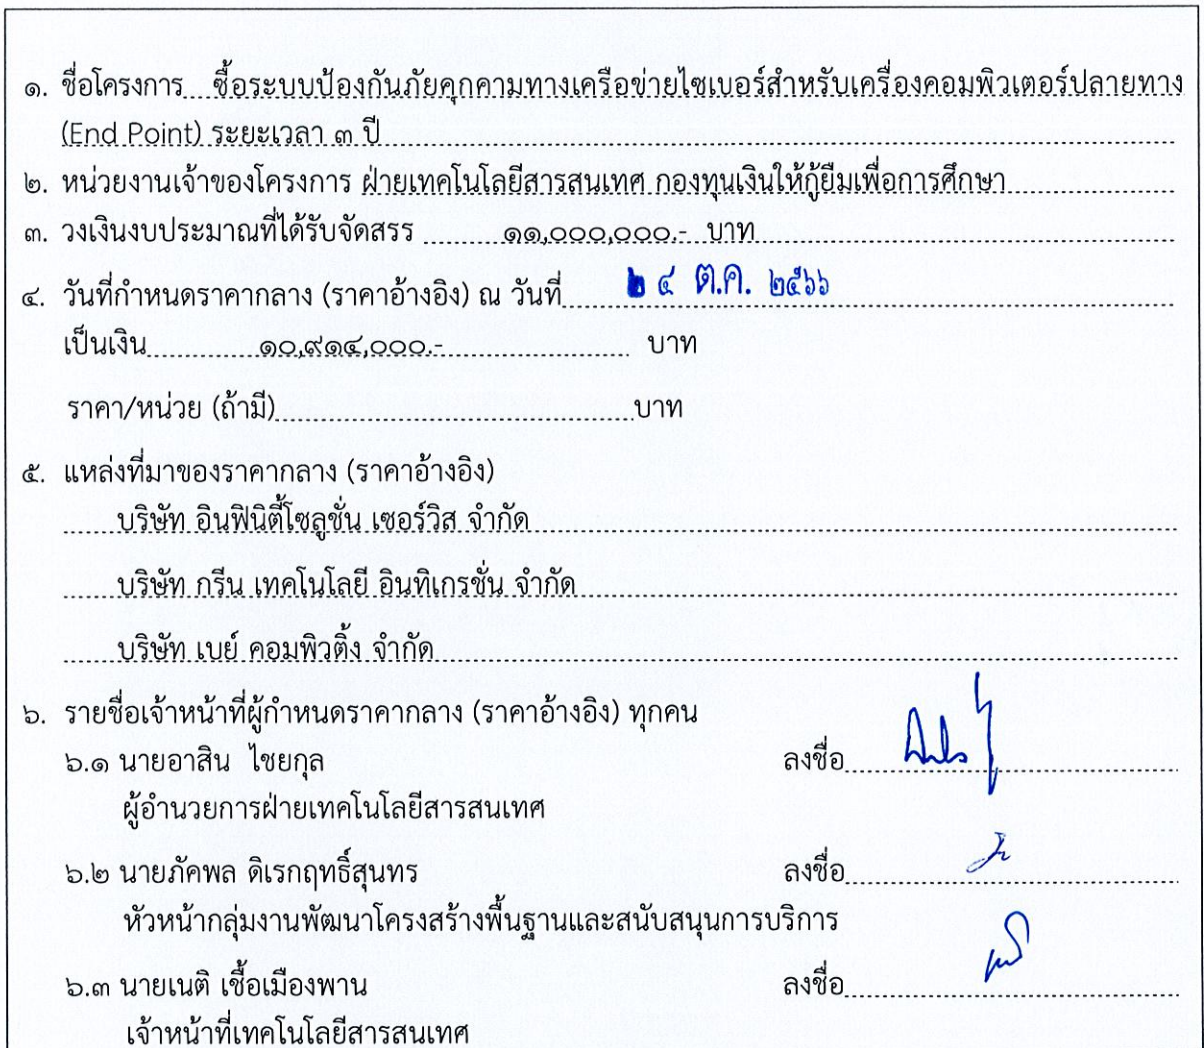 ๑. ชื่อโครงการ ซื้อระบบป้องกันภัยคุกคามทางเครือข่ายไซเบอร์สำหรับเครื่องคอมพิวเตอร์ปลายทาง
(End Point) ระยะเวลา ๓ ปี
๒. หน่วยงานเจ้าของโครงการ ฝ่ายเทคโนโลยีสารสนเทศ กองทุนเงินให้กู้ยืมเพื่อการศึกษา
๓. วงเงินงบประมาณที่ได้รับจัดสรร ๑๑,๐๐๐,๐๐๐.- บาท
๔. วันที่กำหนดราคากลาง (ราคาอ้างอิง) ณ วันที่ ๒ ๔ ต.ค. ๒๕๖๖
เป็นเงิน ๑๐,๙๑๔,๐๐๐.- บาท
ราคา/หน่วย (ถ้ามี) บาท
๕. แหล่งที่มาของราคากลาง (ราคาอ้างอิง)
บริษัท อินฟินิตี้โซลูชั่น เซอร์วิส จำกัด
บริษัท กรีน เทคโนโลยี อินทิเกรชั่น จำกัด
บริษัท เบย์ คอมพิวติ้ง จำกัด
๖. รายชื่อเจ้าหน้าที่ผู้กำหนดราคากลาง (ราคาอ้างอิง) ทุกคน
๖.๑ นายอาสิน ไชยกุล ลงชื่อ
ผู้อำนวยการฝ่ายเทคโนโลยีสารสนเทศ
๖.๒ นายภัคพล ดิเรกฤทธิ์สุนทร ลงชื่อ
หัวหน้ากลุ่มงานพัฒนาโครงสร้างพื้นฐานและสนับสนุนการบริการ
๖.๓ นายเนติ เชื้อเมืองพาน ลงชื่อ
เจ้าหน้าที่เทคโนโลยีสารสนเทศ